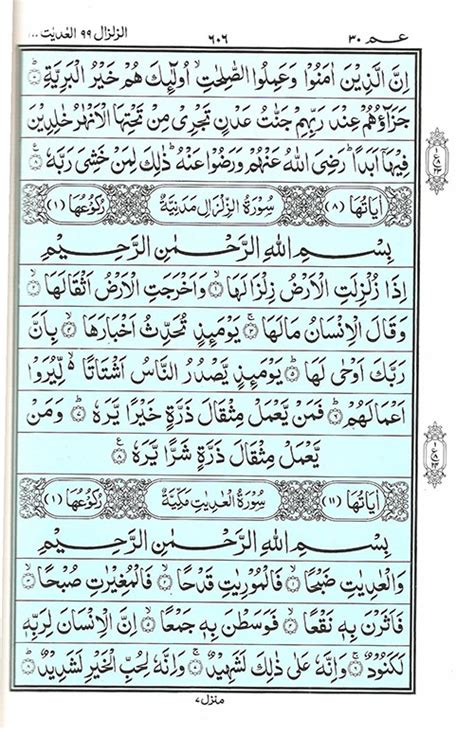 عم ٣٠ ٦٠٦ الزلزال ٩٩ العديت ...
اِنَّ الَّذِيْنَ اٰمَنُوْا وَعَمِلُوا الصّٰلِحٰتِ اُولٰٓئِكَ هُمْ خَيْرُ الْبَرِيَّةِ ۝
جَزَآؤُهُمْ عِنْدَ رَبِّهِمْ جَنّٰتُ عَدْنٍ تَجْرِيْ مِنْ تَحْتِهَا الْاَنْهٰرُ خٰلِدِيْنَ
فِيْهَآ اَبَدًا رَضِيَ اللّٰهُ عَنْهُمْ وَرَضُوْا عَنْهُ ذٰلِكَ لِمَنْ خَشِيَ رَبَّهٗ ۝
اٰيَاتُهَا (٨) سُوْرَةُ الزِّلْزَالِ مَدَنِيَّةٌ رُكُوْعُهَا (١)
بِسْمِ اللّٰهِ الرَّحْمٰنِ الرَّحِيْمِ
اِذَا زُلْزِلَتِ الْاَرْضُ زِلْزَالَهَا ۝ وَاَخْرَجَتِ الْاَرْضُ اَثْقَالَهَا ۝
وَقَالَ الْاِنْسَانُ مَالَهَا ۝ يَوْمَئِذٍ تُحَدِّثُ اَخْبَارَهَا ۝ بِاَنَّ
رَبَّكَ اَوْحٰى لَهَا ۝ يَوْمَئِذٍ يَّصْدُرُ النَّاسُ اَشْتَاتًا لِّيُرَوْا
اَعْمَالَهُمْ ۝ فَمَنْ يَّعْمَلْ مِثْقَالَ ذَرَّةٍ خَيْرًا يَّرَهٗ ۝ وَمَنْ
يَّعْمَلْ مِثْقَالَ ذَرَّةٍ شَرًّا يَّرَهٗ ۝
اٰيَاتُهَا (١١) سُوْرَةُ الْعٰدِيٰتِ مَكِّيَّةٌ رُكُوْعُهَا (١)
بِسْمِ اللّٰهِ الرَّحْمٰنِ الرَّحِيْمِ
وَالْعٰدِيٰتِ ضَبْحًا ۝ فَالْمُوْرِيٰتِ قَدْحًا ۝ فَالْمُغِيْرٰتِ صُبْحًا ۝
فَاَثَرْنَ بِهٖ نَقْعًا ۝ فَوَسَطْنَ بِهٖ جَمْعًا ۝ اِنَّ الْاِنْسَانَ لِرَبِّهٖ
لَكَنُوْدٌ ۝ وَاِنَّهٗ عَلٰى ذٰلِكَ لَشَهِيْدٌ ۝ وَاِنَّهٗ لِحُبِّ الْخَيْرِ لَشَدِيْدٌ ۝
منزل ٧